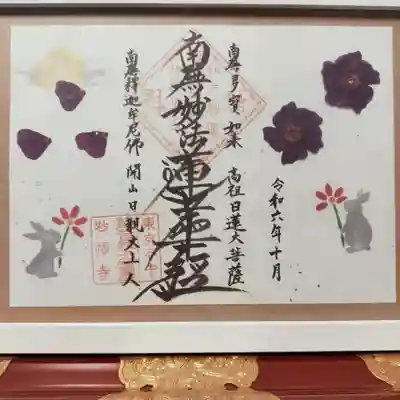 令和六年十月
南無多寶如来 高祖日蓮大菩薩
南無妙法蓮華經
南無釋迦牟尼佛 開山日親大上人
東京